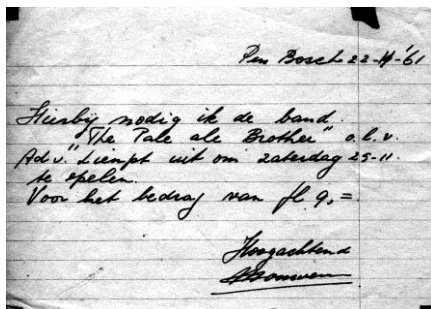 Den Bosch 22-11-'61
Hierbij nodig ik de band
"The Pale ale Brother" o.l.v.
Ad v. Liempt uit om zaterdag 25-11.
te spelen.
Voor het bedrag van fl 9,=
Hoogachtend